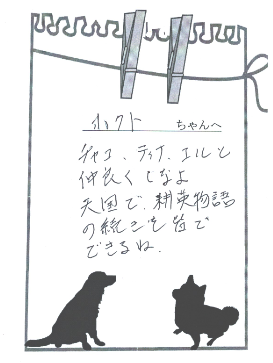 ちゃんへ
チャコ、ティナ、エルと
仲良くしなよ
天国で、耕英物語
の続きを皆で
できるね。